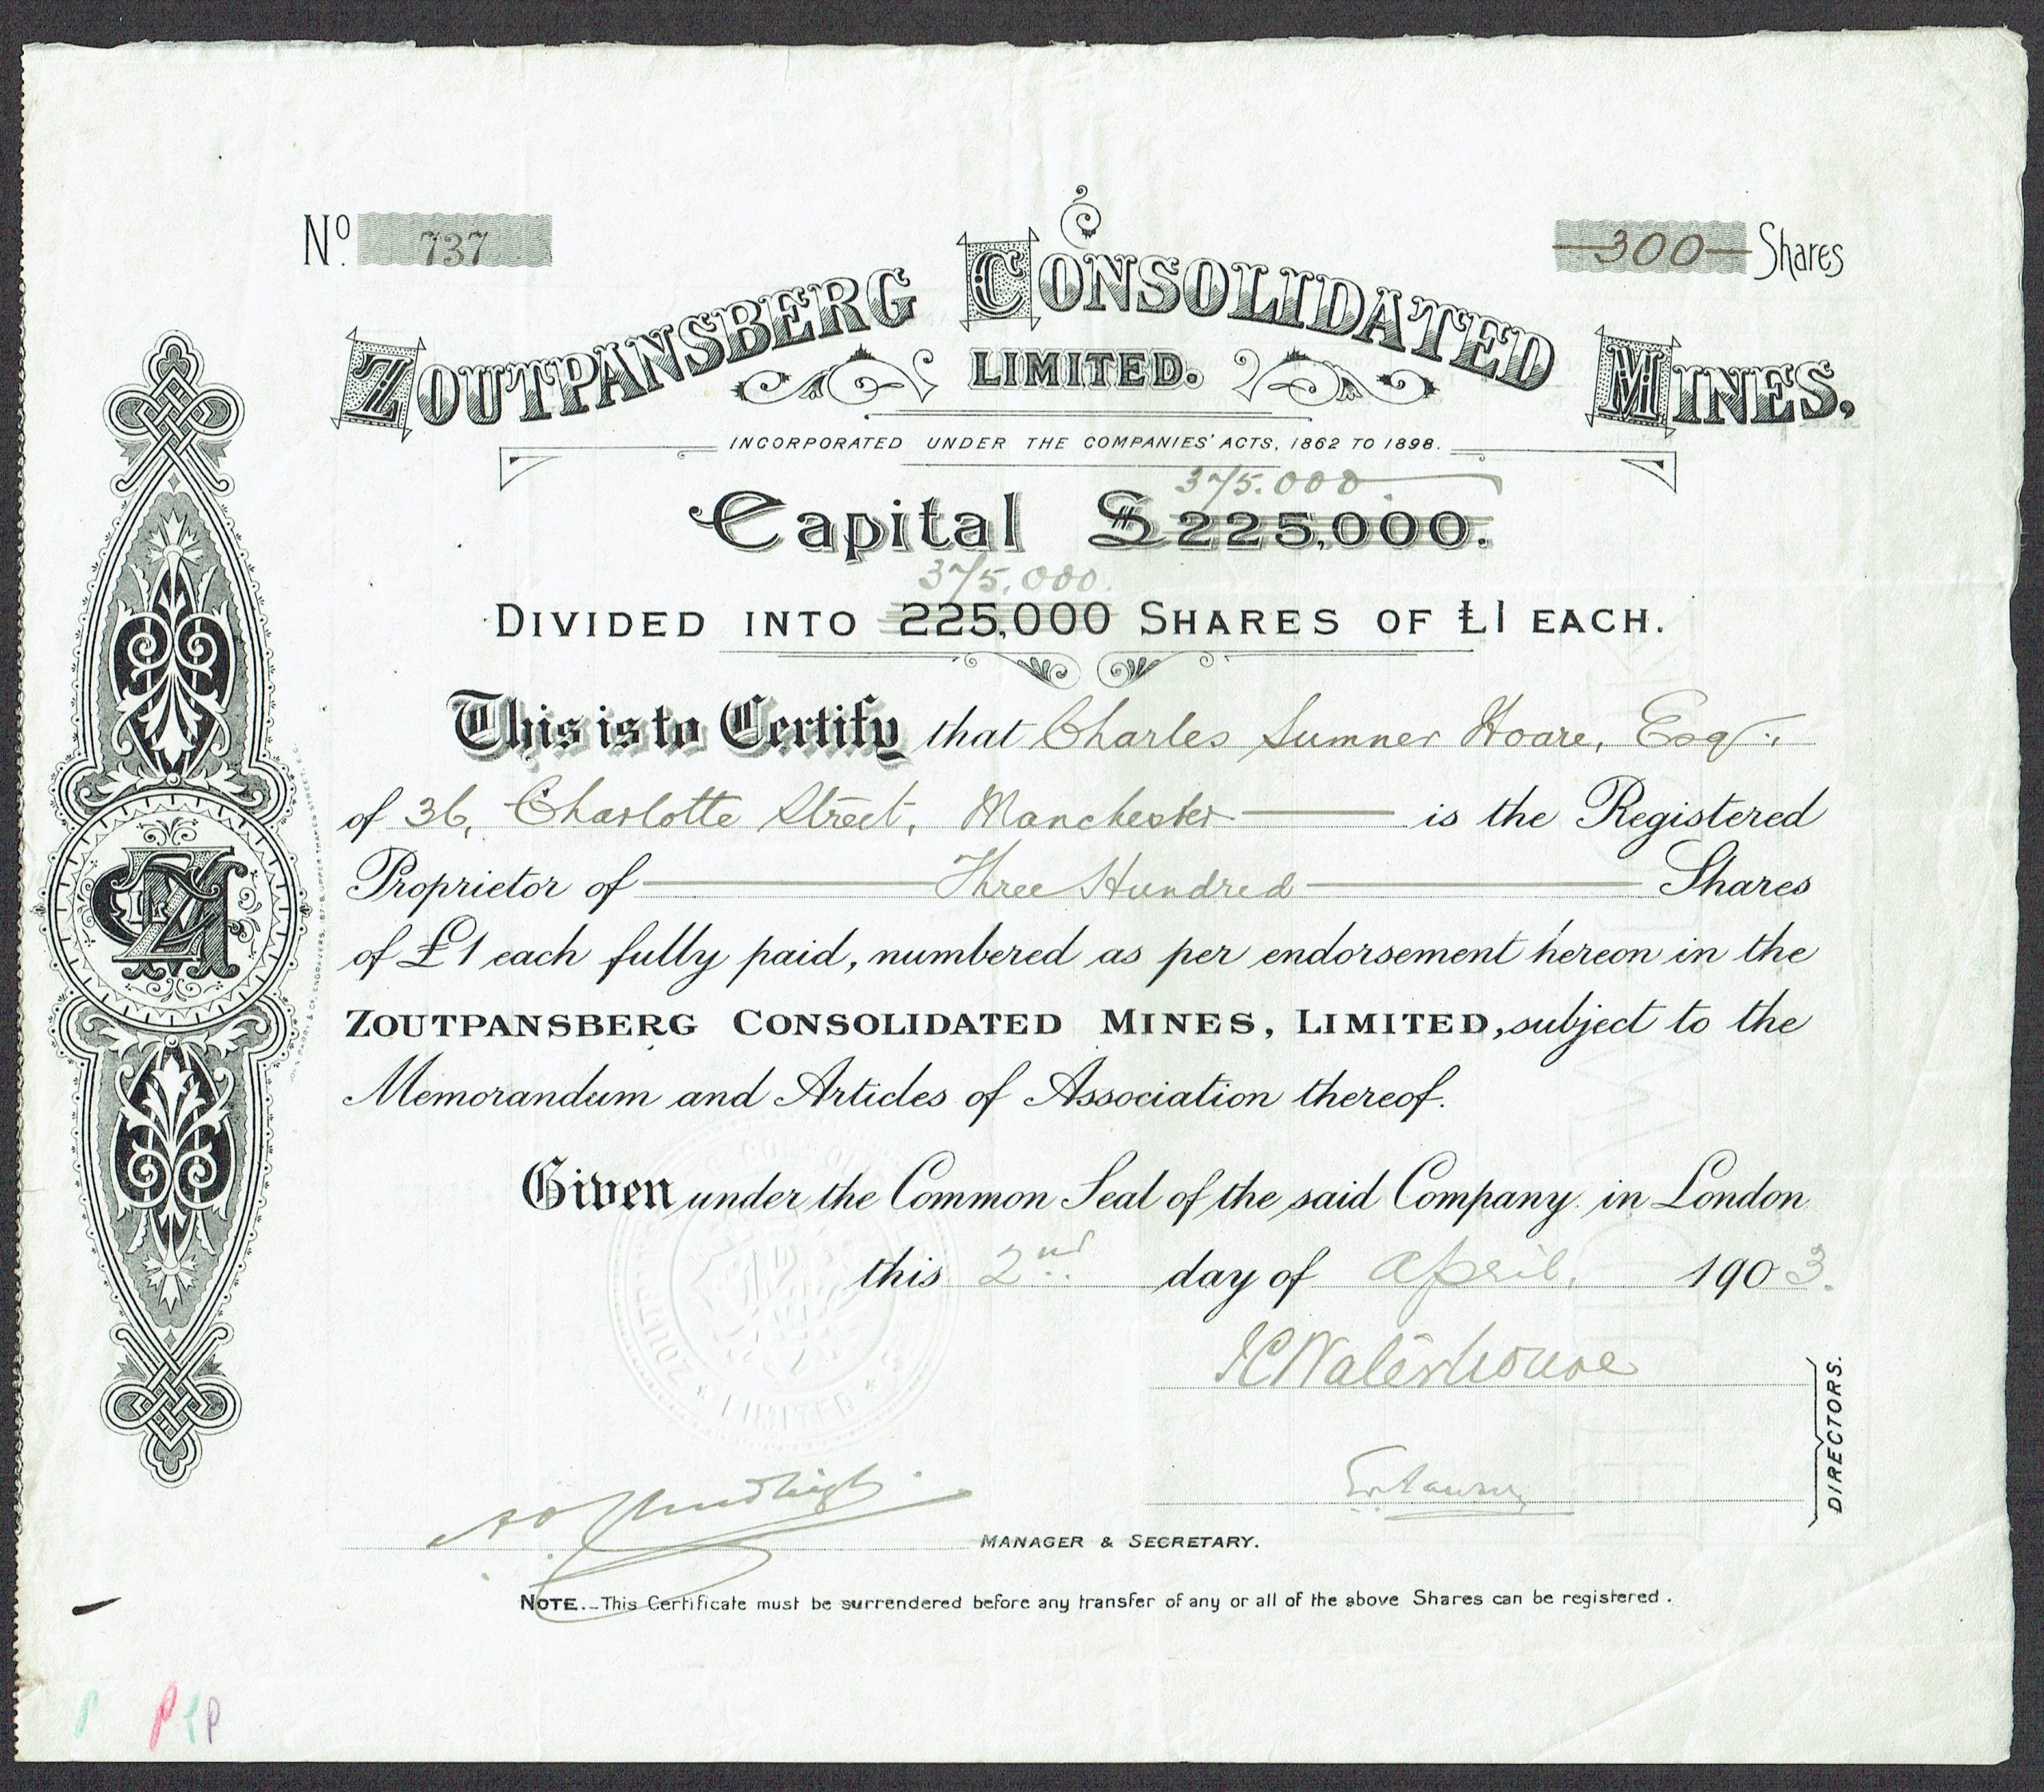 No. 737
300 Shares
ZOUTPANSBERG CONSOLIDATED MINES,
LIMITED.
INCORPORATED UNDER THE COMPANIES' ACTS, 1862 TO 1898.
375.000.
Capital £225,000.
375.000.
DIVIDED INTO 225,000 SHARES OF £1 EACH.
This is to Certify that Charles Sumner Hoare, Esq.,
of 36, Charlotte Street, Manchester is the Registered
Proprietor of Three Hundred Shares
of £1 each fully paid, numbered as per endorsement hereon in the
ZOUTPANSBERG CONSOLIDATED MINES, LIMITED, subject to the
Memorandum and Articles of Association thereof.
Given under the Common Seal of the said Company in London
this 2nd day of April, 1903.
Waterhouse
DIRECTORS.
MANAGER & SECRETARY.
NOTE.—This Certificate must be surrendered before any transfer of any or all of the above Shares can be registered.
LIMITED
P P P